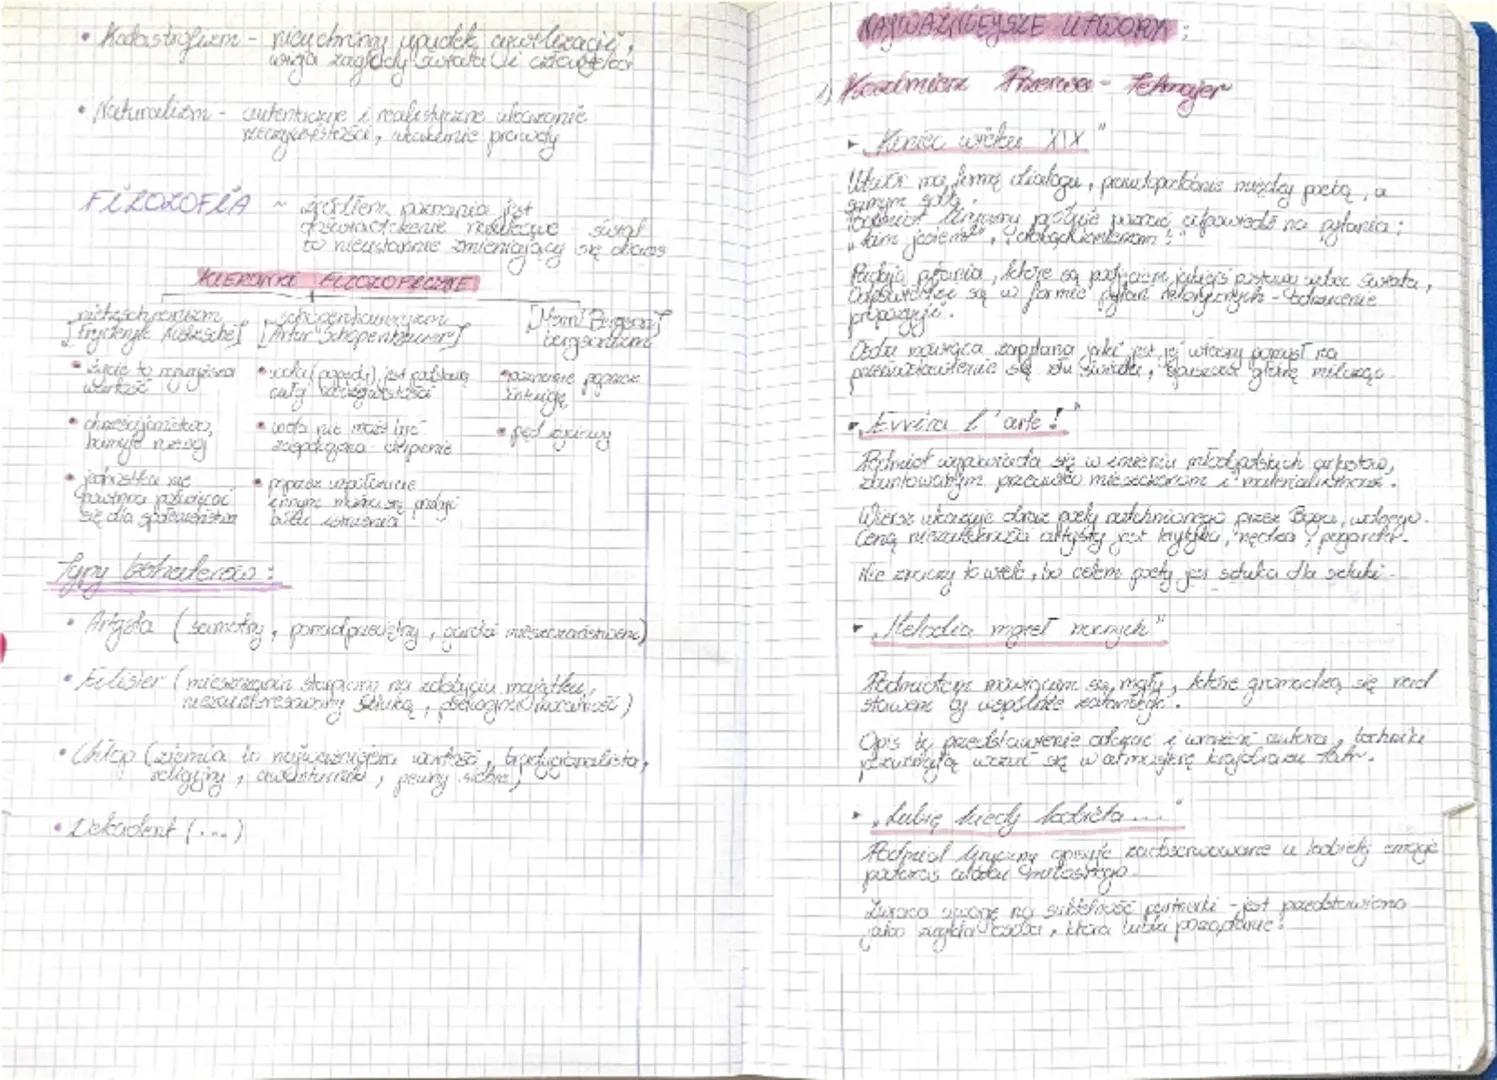 • Katastrofizm - nieuchronny upadek cywilizacji,
wizja zagłady świata i człowieka
• Naturalizm - autentyczne i realistyczne ukazanie
rzeczywistości, ukazanie prawdy
FILOZOFIA ~ źródłem poznania jest
doświadczenie świat
to nieustannie zmieniający się chaos
KIERUNKI FILOZOFICZNE
nietzscheanizm
[Fryderyk Nietzsche]
• życie to najwyższa
wartość
• chrześcijaństwo
hamuje rozwój
• jednostka nie
powinna poświęcać
się dla społeczeństwa
schopenhaueryzm
[Artur Schopenhauer]
• wola (popędy) jest podstawą
całej rzeczywistości
• wola nie może być
zaspokojona - cierpienie
• poprzez współczucie
innym można się pozbyć
bólu istnienia
[Henri Bergson]
bergsonizm
• poznanie poprzez
intuicję
• pęd życiowy
Typy bohaterów:
• Artysta (samotny, ponadprzeciętny, gardzi mieszczaństwem)
• Filister (mieszczanin skupiony na zdobyciu majątku,
niezainteresowany sztuką, moralność)
• Chłop (ziemia to najważniejsza wartość, tradycjonalista,
religijny, pewny siebie)
• Dekadent (...)
NAJWAŻNIEJSZE UTWORY:
1) Kazimierz Przerwa - Tetmajer
"Koniec wieku XIX"
Utwór ma formę dialogu, prawdopodobnie między poetą, a
samym sobą.
Podmiot liryczny próbuje poznać odpowiedź na pytania:
"kim jestem",
Padają pytania, które są podjęciem jakiejś postawy wobec świata,
odpowiedzi są w formie pytań retorycznych - odrzucenie
propozycji.
Osoba mówiąca zapytana jaki jest jej własny pomysł na
przeciwstawienie się złu świata, spuszcza głowę milcząc.
"Evviva l'arte!"
Podmiot wypowiada się w imieniu młodopolskich artystów,
zbuntowanym przeciwko mieszczanom i materialistom.
Wiersz ukazuje obraz poety natchnionego przez Boga,
Ceną niezależności artysty jest krytyka, nędza, pogarda.
Nie znaczy to wiele, bo celem poety jest sztuka dla sztuki.
"Melodia mgieł nocnych"
Podmiotem mówiącym są mgły, które gromadzą się nad
stawem by wspólnie zatańczyć.
Opis to przedstawienie odczuć i wrażeń autora, techniki
pozwalają wczuć się w atmosferę krajobrazu Tatr.
"Lubię kiedy kobieta..."
Podmiot liryczny opisuje zaobserwowane u kobiety emocje
podczas aktu miłosnego.
Zwraca uwagę na subtelność partnerki - jest przedstawiona
jako zwykła osoba, która lubi pożądanie.